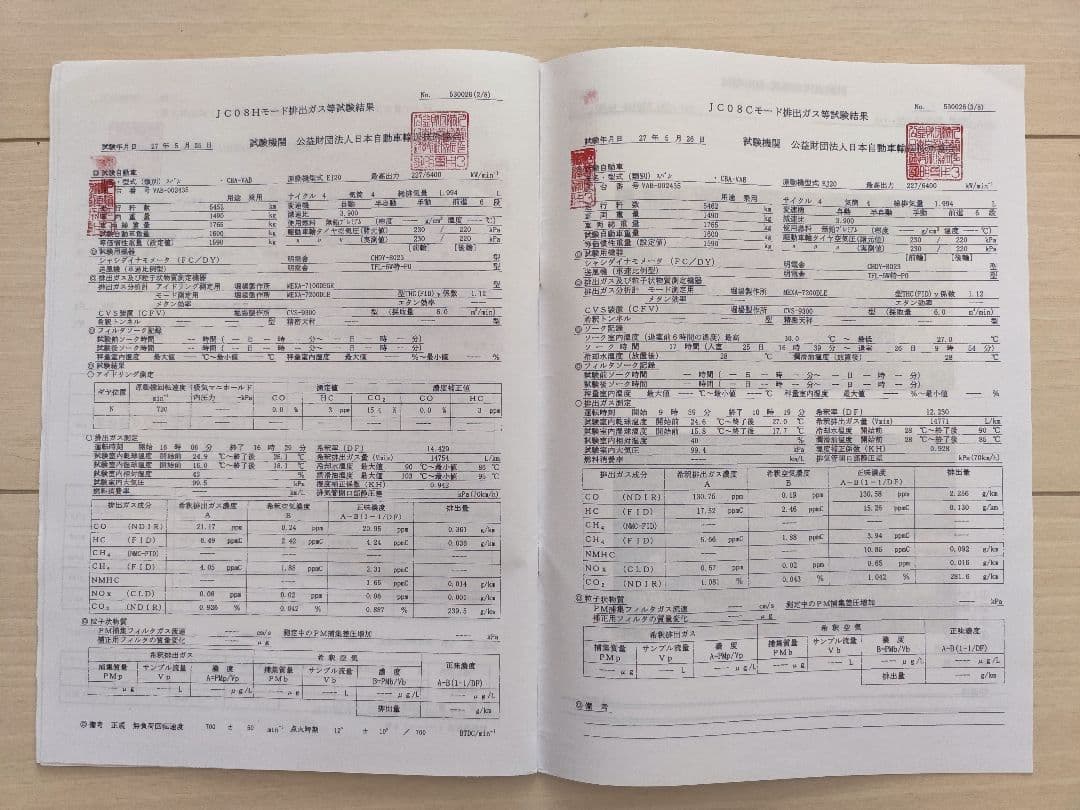 No. 530026(2/8)
JC08Hモード排出ガス等試験結果
試験年月日 27年5月26日 試験機関 公益財団法人日本自動車輸送技術協会
試験自動車
・型式(類別) スバル ・CBA-VAB 原動機型式 EJ20 最高出力 227/6400 kW/min⁻¹
台番号 VAB-002435 用途 乗用 サイクル 4 気筒 4 総排気量 1.994 L
走行キロ数 5452 km 変速機 自動 半自動 手動 前進 6 段
車両重量 1490 kg 減速比 3.900
車両総重量 1765 kg 使用燃料 無鉛プレミアム (密度 ---- g/cm³ 温度 ---℃)
試験自動車重量 1600 kg 駆動車輪タイヤ空気圧(諸元値) 230 / 220 kPa
等価慣性重量(設定値) 1590 kg 〃 〃 (実測値) 230 / 220 kPa
◎試験用機器 [前輪] [後輪]
シャシダイナモメータ(FC/DY) 明電舎 CHDY-8023 型
送風機(車速比例型) 明電舎 TFL-5W特-PU 型
◎排出ガス及び粒子状物質測定機器
排出ガス分析計 アイドリング測定用 堀場製作所 MEXA-7100DEGR 型
モード測定用 堀場製作所 MEXA-7200DLE 型THC(FID)γ係数 1.12
メタン効率 エタン効率
CVS装置(CFV) 堀場製作所 CVS-9300 型 (採取量 6.0 m³/min)
希釈トンネル ---- ---- 型 精密天秤 ---- ---- 型
◎フィルタソーク記録
試験前ソーク時間 --- 時間 (--日--時--分〜--日--時--分)
試験後ソーク時間 --- 時間 (--日--時--分〜--日--時--分)
秤量室内温度 最大値 ---℃〜最小値 ---℃ 秤量室内湿度 最大値 ---%〜最小値 ---%
◎試験結果
○アイドリング測定
ギヤ位置 原動機回転速度 min⁻¹ 吸気マニホールド内圧力 -kPa 測定値 濃度補正値
CO HC CO₂ CO HC
N 720 ---- 0.0 % 3 ppm 15.4 % 0.0 % 3 ppm
○排出ガス測定
運転時間 開始 16時06分 終了 16時29分 希釈率(DF) 14.429
試験室内乾球温度 開始前 24.9 ℃〜終了後 25.1 ℃ 希釈排出ガス量(Vmix) 14754 L/km
試験室内湿球温度 開始前 16.0 ℃〜終了後 16.1 ℃ 冷却水温度 最大値 90 ℃〜最小値 86 ℃
試験室内相対湿度 40 % 潤滑油温度 最大値 100 ℃〜最小値 95 ℃
試験室内大気圧 99.5 kPa 湿度補正係数(KH) 0.942
燃料消費率 ---- km/L 排気管開口部静圧差 ---- kPa(70km/h)
排出ガス成分 希釈排出ガス濃度 A 希釈空気濃度 B 正味濃度 A-B(1-1/DF) 排出量
CO (NDIR) 21.17 ppm 0.24 ppm 20.95 ppm 0.361 g/km
HC (FID) 6.49 ppmC 2.42 ppmC 4.24 ppmC 0.036 g/km
CH₄ (NMC-FID) ---- ---- ---- ----
CH₄ (FID) 4.05 ppmC 1.88 ppmC 2.31 ppmC ----
NMHC ---- ---- 1.65 ppmC 0.014 g/km
NOx (CLD) 0.08 ppm 0.02 ppm 0.06 ppm 0.001 g/km
CO₂ (NDIR) 0.926 % 0.042 % 0.887 % 239.5 g/km
◎粒子状物質
PM捕集フィルタガス流速 ---- cm/s 測定中のPM捕集差圧増加 ---- kPa
補正用フィルタの質量変化 ---- μg
希釈排出ガス 希釈空気 正味濃度
捕集質量 PMp サンプル流量 Vp 濃度 A=PMp/Vp 捕集質量 PMb サンプル流量 Vb 濃度 B=PMb/Vb A-B(1-1/DF)
---- μg ---- L ---- μg/L ---- μg ---- L ---- μg/L ---- μg/L
排出量 ---- g/km
◎備考 正規 無負荷回転速度 700 ± 50 min⁻¹ 点火時期 12° ± 10° / 700 BTDC/min⁻¹
No. 530026(3/8)
JC08Cモード排出ガス等試験結果
試験年月日 27年5月26日 試験機関 公益財団法人日本自動車輸送技術協会
試験自動車
・型式(類別) スバル ・CBA-VAB 原動機型式 EJ20 最高出力 227/6400 kW/min⁻¹
台番号 VAB-002435 用途 乗用 サイクル 4 気筒 4 総排気量 1.994 L
走行キロ数 5462 km 変速機 自動 半自動 手動 前進 6 段
車両重量 1490 kg 減速比 3.900
車両総重量 1765 kg 使用燃料 無鉛プレミアム (密度 ---- g/cm³ 温度 ---℃)
試験自動車重量 1600 kg 駆動車輪タイヤ空気圧(諸元値) 230 / 220 kPa
等価慣性重量(設定値) 1590 kg 〃 〃 (実測値) 230 / 220 kPa
◎試験用機器 [前輪] [後輪]
シャシダイナモメータ(FC/DY) 明電舎 CHDY-8023 型
送風機(車速比例型) 明電舎 TFL-5W特-PU 型
◎排出ガス及び粒子状物質測定機器
排出ガス分析計 モード測定用 堀場製作所 MEXA-7200DLE 型THC(FID)γ係数 1.12
メタン効率 エタン効率
CVS装置(CFV) 堀場製作所 CVS-9300 型 (採取量 6.0 m³/min)
希釈トンネル ---- ---- 型 精密天秤 ---- ---- 型
◎ソーク記録
ソーク室内温度(退室前6時間の温度) 最高 30.0 ℃ 〜 最低 27.0 ℃
ソーク時間 17 時間 (入室 25日16時39分〜退室 26日9時54分)
冷却水温度(放置後) 28 ℃ 潤滑油温度(放置後) 28 ℃
◎フィルタソーク記録
試験前ソーク時間 --- 時間 (--日--時--分〜--日--時--分)
試験後ソーク時間 --- 時間 (--日--時--分〜--日--時--分)
秤量室内温度 最大値 ---℃〜最小値 ---℃ 秤量室内湿度 最大値 ---%〜最小値 ---%
○排出ガス測定
運転時刻 開始 9時59分 終了 10時19分 希釈率(DF) 12.250
試験室内乾球温度 開始前 24.6 ℃〜終了後 27.0 ℃ 希釈排出ガス量(Vmix) 14771 L/km
試験室内湿球温度 開始前 15.8 ℃〜終了後 17.7 ℃ 冷却水温度 開始前 28 ℃〜終了後 90 ℃
試験室内相対湿度 40 % 潤滑油温度 開始前 28 ℃〜終了後 85 ℃
試験室内大気圧 99.4 kPa 湿度補正係数(KH) 0.928
燃料消費率 ---- km/L 排気管開口部静圧差 ---- kPa(70km/h)
排出ガス成分 希釈排出ガス濃度 A 希釈空気濃度 B 正味濃度 A-B(1-1/DF) 排出量
CO (NDIR) 130.76 ppm 0.19 ppm 130.58 ppm 2.256 g/km
HC (FID) 17.52 ppmC 2.46 ppmC 15.26 ppmC 0.130 g/km
CH₄ (NMC-FID) ---- ---- ---- ----
CH₄ (FID) 5.66 ppmC 1.88 ppmC 3.94 ppmC ----
NMHC ---- ---- 10.85 ppmC 0.092 g/km
NOx (CLD) 0.67 ppm 0.02 ppm 0.65 ppm 0.016 g/km
CO₂ (NDIR) 1.081 % 0.043 % 1.042 % 281.6 g/km
◎粒子状物質
PM捕集フィルタガス流速 ---- cm/s 測定中のPM捕集差圧増加 ---- kPa
補正用フィルタの質量変化 ---- μg
希釈排出ガス 希釈空気 正味濃度
捕集質量 PMp サンプル流量 Vp 濃度 A=PMp/Vp 捕集質量 PMb サンプル流量 Vb 濃度 B=PMb/Vb A-B(1-1/DF)
---- μg ---- L ---- μg/L ---- μg ---- L ---- μg/L ---- μg/L
排出量 ---- g/km
◎備考